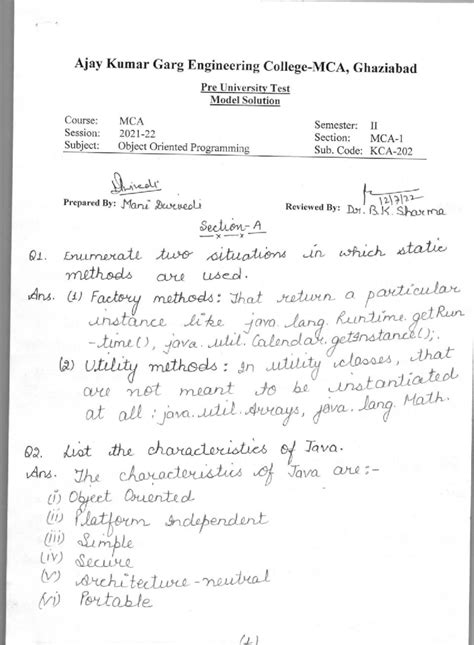 Ajay Kumar Garg Engineering College-MCA, Ghaziabad
Pre University Test
Model Solution
Course: MCA
Semester: II
Session: 2021-22
Section: MCA-1
Subject: Object Oriented Programming
Sub. Code: KCA-202
Dwivedi
12/7/22
Prepared By: Mani Dwivedi
Reviewed By: Dr. B.K. Sharma
Section-A
Q1. Enumerate two situations in which static
methods are used.
Ans. (1) Factory methods: That return a particular
instance like java.lang.Runtime.getRun
-time(), java.util.Calendar.getInstance();
(2) Utility methods: In utility classes, that
are not meant to be instantiated
at all: java.util.Arrays, java.lang.Math.
Q2. List the characteristics of Java.
Ans. The characteristics of Java are:-
(i) Object Oriented
(ii) Platform Independent
(iii) Simple
(iv) Secure
(v) Architecture-neutral
(vi) Portable
(1)